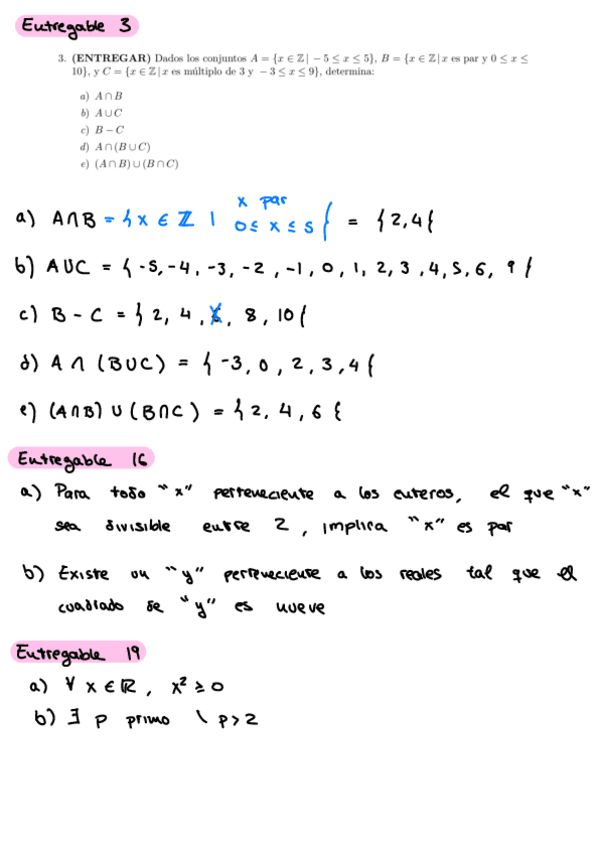 Entregable 3
3. (ENTREGAR) Dados los conjuntos A = {x ∈ ℤ | − 5 ≤ x ≤ 5}, B = {x ∈ ℤ | x es par y 0 ≤ x ≤
10}, y C = {x ∈ ℤ | x es múltiplo de 3 y − 3 ≤ x ≤ 9}, determina:
a) A ∩ B
b) A ∪ C
c) B − C
d) A ∩ (B ∪ C)
e) (A ∩ B) ∪ (B ∩ C)
a) A∩B = {x ∈ ℤ | x par 0 ≤ x ≤ 5} = {2,4}
b) A∪C = {-5,-4,-3,-2,-1,0,1,2,3,4,5,6,9}
c) B - C = {2, 4, 6, 8, 10}
d) A ∩ (B∪C) = {-3,0,2,3,4}
e) (A∩B) ∪ (B∩C) = {2,4,6}
Entregable 16
a) Para todo "x" perteneciente a los enteros, el que "x"
sea divisible entre 2, implica "x" es par
b) Existe un "y" perteneciente a los reales tal que el
cuadrado de "y" es nueve
Entregable 19
a) ∀ x ∈ ℝ, x² ≥ 0
b) ∃ p primo \ p > 2